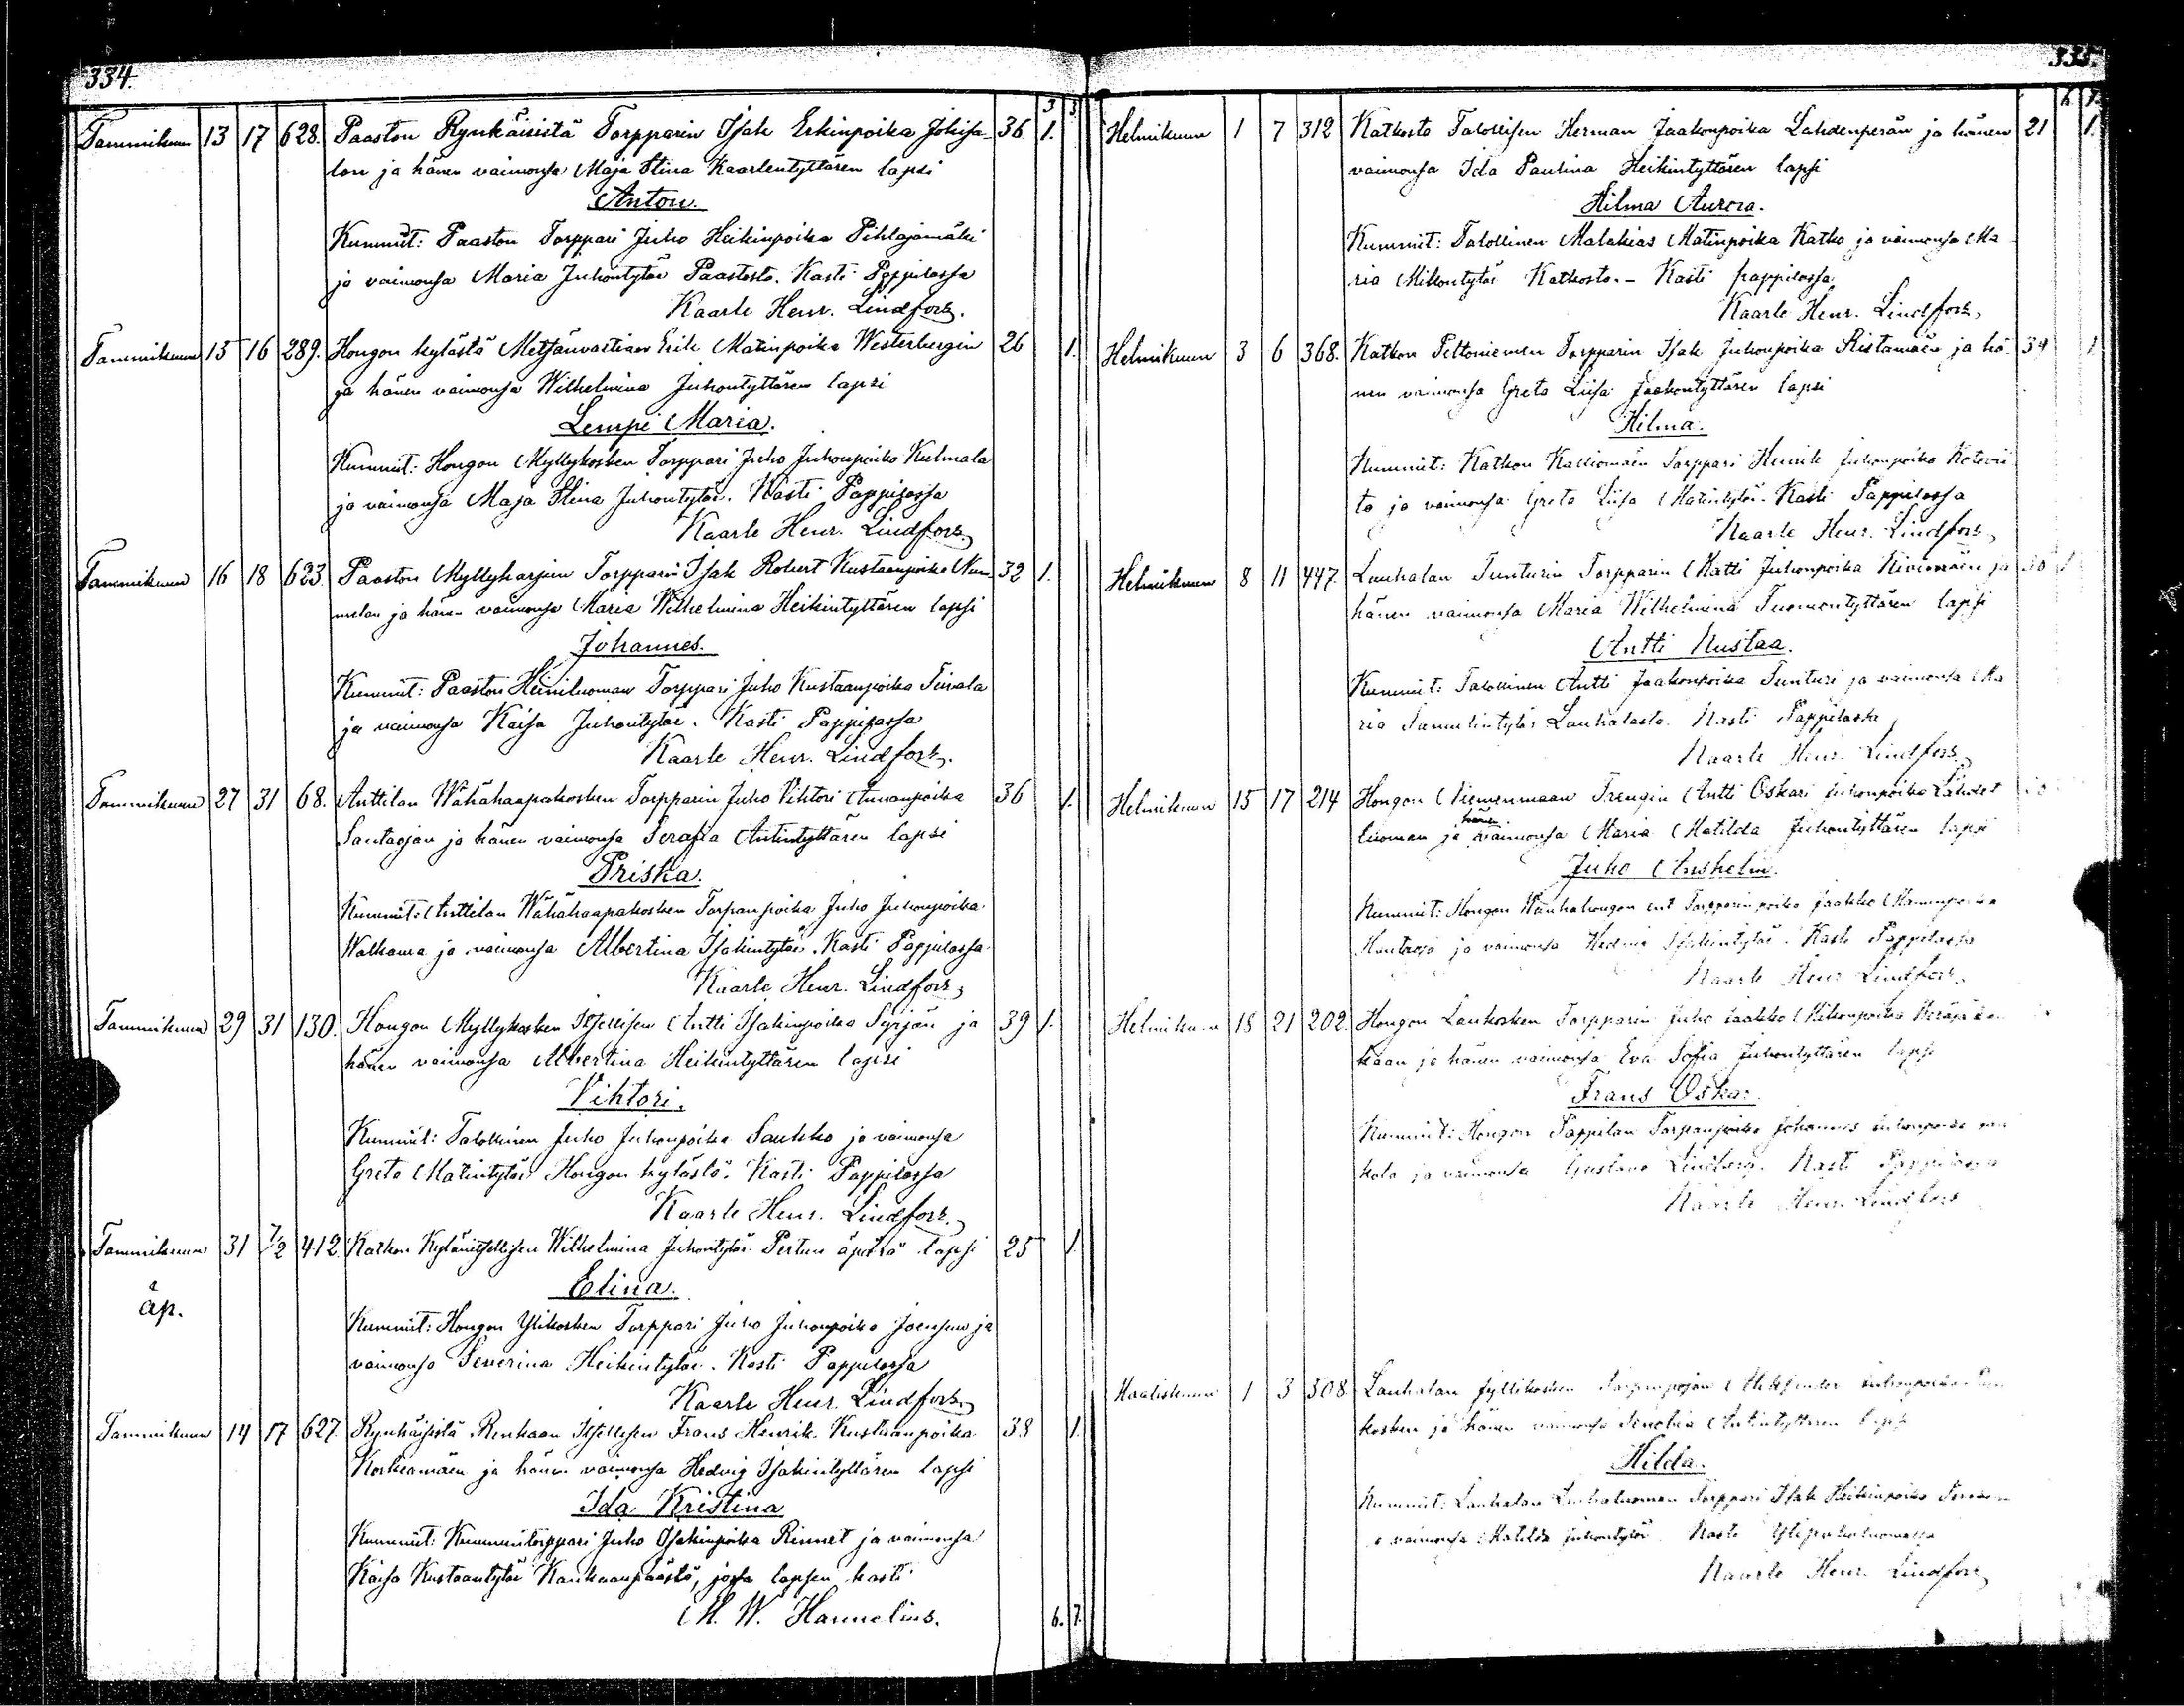 334.
3 3
Tammikuun 13 17 628. Paaston Rynkäisistä Torpparin Isak Erkinpoika Jokisa- 36 1.
lon ja hänen vaimonsa Maja Stina Kaarlentyttären lapsi
Anton.
Kummit: Paaston Torppari Juho Heikinpoika Pihlajamäki
ja vaimonsa Maria Juhontytär Paastosta. Kasti Pappilassa
Kaarle Henr. Lindfors.
Tammikuun 15 16 289. Hongon kylästä Metsänvartian Erik Matinpoika Westerbergin 26 1.
ja hänen vaimonsa Wilhelmina Juhontyttären lapsi
Lempi Maria.
Kummit: Hongon Myllykosken Torppari Juho Juhonpoika Kulmala
ja vaimonsa Maja Stina Juhontytär. Kasti Pappilassa
Kaarle Henr. Lindfors.
Tammikuun 16 18 623. Paaston Myllyharjun Torpparin Isak Robert Kustaanpoika Num- 32 1.
melan ja hänen vaimonsa Maria Wilhelmina Heikintyttären lapsi
Johannes.
Kummit: Paaston Heiniluoman Torppari Juho Kustaanpoika
ja vaimonsa Kaisa Juhontytär. Kasti Pappilassa
Kaarle Henr. Lindfors.
Tammikuun 27 31 68. Anttilan Wähähaapakosken Torpparin Juho Vihtori 36 1.
Santaojan ja hänen vaimonsa Serafia Antintyttären lapsi
Priska.
Kummit: Anttilan Wähähaapakosken Torpanpoika Juho Juhonpoika
Walkama ja vaimonsa Albertina Isakintytär. Kasti Pappilassa
Kaarle Henr. Lindfors.
Tammikuun 29 31 130. Hongon Myllykosken Itsellisen Antti Isakinpoika Syrjän ja 39 1.
hänen vaimonsa Albertina Heikintyttären lapsi
Vihtori.
Kummit: Talollinen Juho Juhonpoika Saukko ja vaimonsa
Greta Matintytär Hongon kylästä. Kasti Pappilassa
Kaarle Henr. Lindfors.
Tammikuun 31 7/2 412. Katkon Kylänitsellisen Wilhelmina Juhontytär Pertun äpärä lapsi 25 1.
äp.
Elina.
Kummit: Hongon Ylikosken Torppari Juho Juhonpoika Joensuu ja
vaimonsa Severina Heikintytär. Kasti Pappilassa
Kaarle Henr. Lindfors.
Tammikuun 14 17 627. Rynkäisistä Renkaan Itsellisen Frans Henrik Kustaanpoika 38 1.
Korkeamäen ja hänen vaimonsa Hedvig Isakintyttären lapsi
Ida Kristina
Kummit: Juho Isakinpoika Rinnet ja vaimonsa
Kaisa Kustaantytär Kankaanpäästä, jossa lapsen kasti
M. W. Hannelius.
6. 7.
335.
6. 7.
Helmikuun 1 7 312 Katkosta Talollisen Herman Jaakonpoika Lahdenperän ja hänen 21 1.
vaimonsa Ida Paulina Heikintyttären lapsi
Hilma Aurora.
Kummit: Talollinen Malakias Matinpoika Katko ja vaimonsa Ma
ria Mikontytär Katkosta. – Kasti pappilassa
Kaarle Henr. Lindfors,
Helmikuun 3 6 368. Katkon Peltoniemen Torpparin Isak Juhonpoika Ristamäen ja hä- 34 1
nen vaimonsa Greta Liisa Jaakontyttären lapsi
Hilma.
Kummit: Katkon Kalliomäen Torppari Henrik Juhonpoika Kotovii
ta ja vaimonsa Greta Liisa Matintytär. Kasti Pappilassa
Kaarle Henr. Lindfors,
Helmikuun 8 11 447. Lauhalan Tunturin Torpparin Matti Juhonpoika Kivimäen ja
hänen vaimonsa Maria Wilhelmina Tuomontyttären lapsi
Antti Kustaa.
Kummit: Talollinen Antti Jaakonpoika Tunturi ja vaimonsa Ma
ria Samulintytär Lauhalasta. Kasti Pappilassa
Kaarle Henr. Lindfors,
Helmikuun 15 17 214 Hongon Niemenmaan Trengin Antti Oskari Juhonpoika Lähdet
luoman ja hänen vaimonsa Maria Matilda Juhontyttären lapsi
Juho Anshelm.
Kummit: Hongon Wanhahongon ent Torpparinpoika Jaakko
ja vaimonsa Isakintytär. Kasti Pappilassa
Kaarle Henr. Lindfors.
Helmikuun 18 21 202. Hongon Laukosken Torpparin Juho Jaakko Mikonpoika
ja hänen vaimonsa Eva Sofia Juhontyttären lapsi
Frans Oskar.
Kummit: Hongon Pappilan Torpanpoika Johannes Juhonpoika
ja vaimonsa Gustava Lindberg. Kasti Pappilassa
Kaarle Henr. Lindfors
Maaliskuun 1 3 508 Lauhalan Jyllikosken Torpanpojan Juhonpoika
kosken ja hänen vaimonsa Antintyttären lapsi
Hilda.
Kummit: Lauhalan Torppari Isak Heikinpoika
vaimonsa Matilda Juhontytär. Kasti
Kaarle Henr. Lindfors